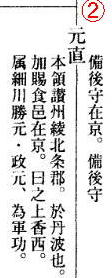 ②
備後守在京。備後守
元直
本領讃州綾北条郡。於丹波也。
加賜食邑在京。曰之上香西。
属細川勝元・政元、為軍功。